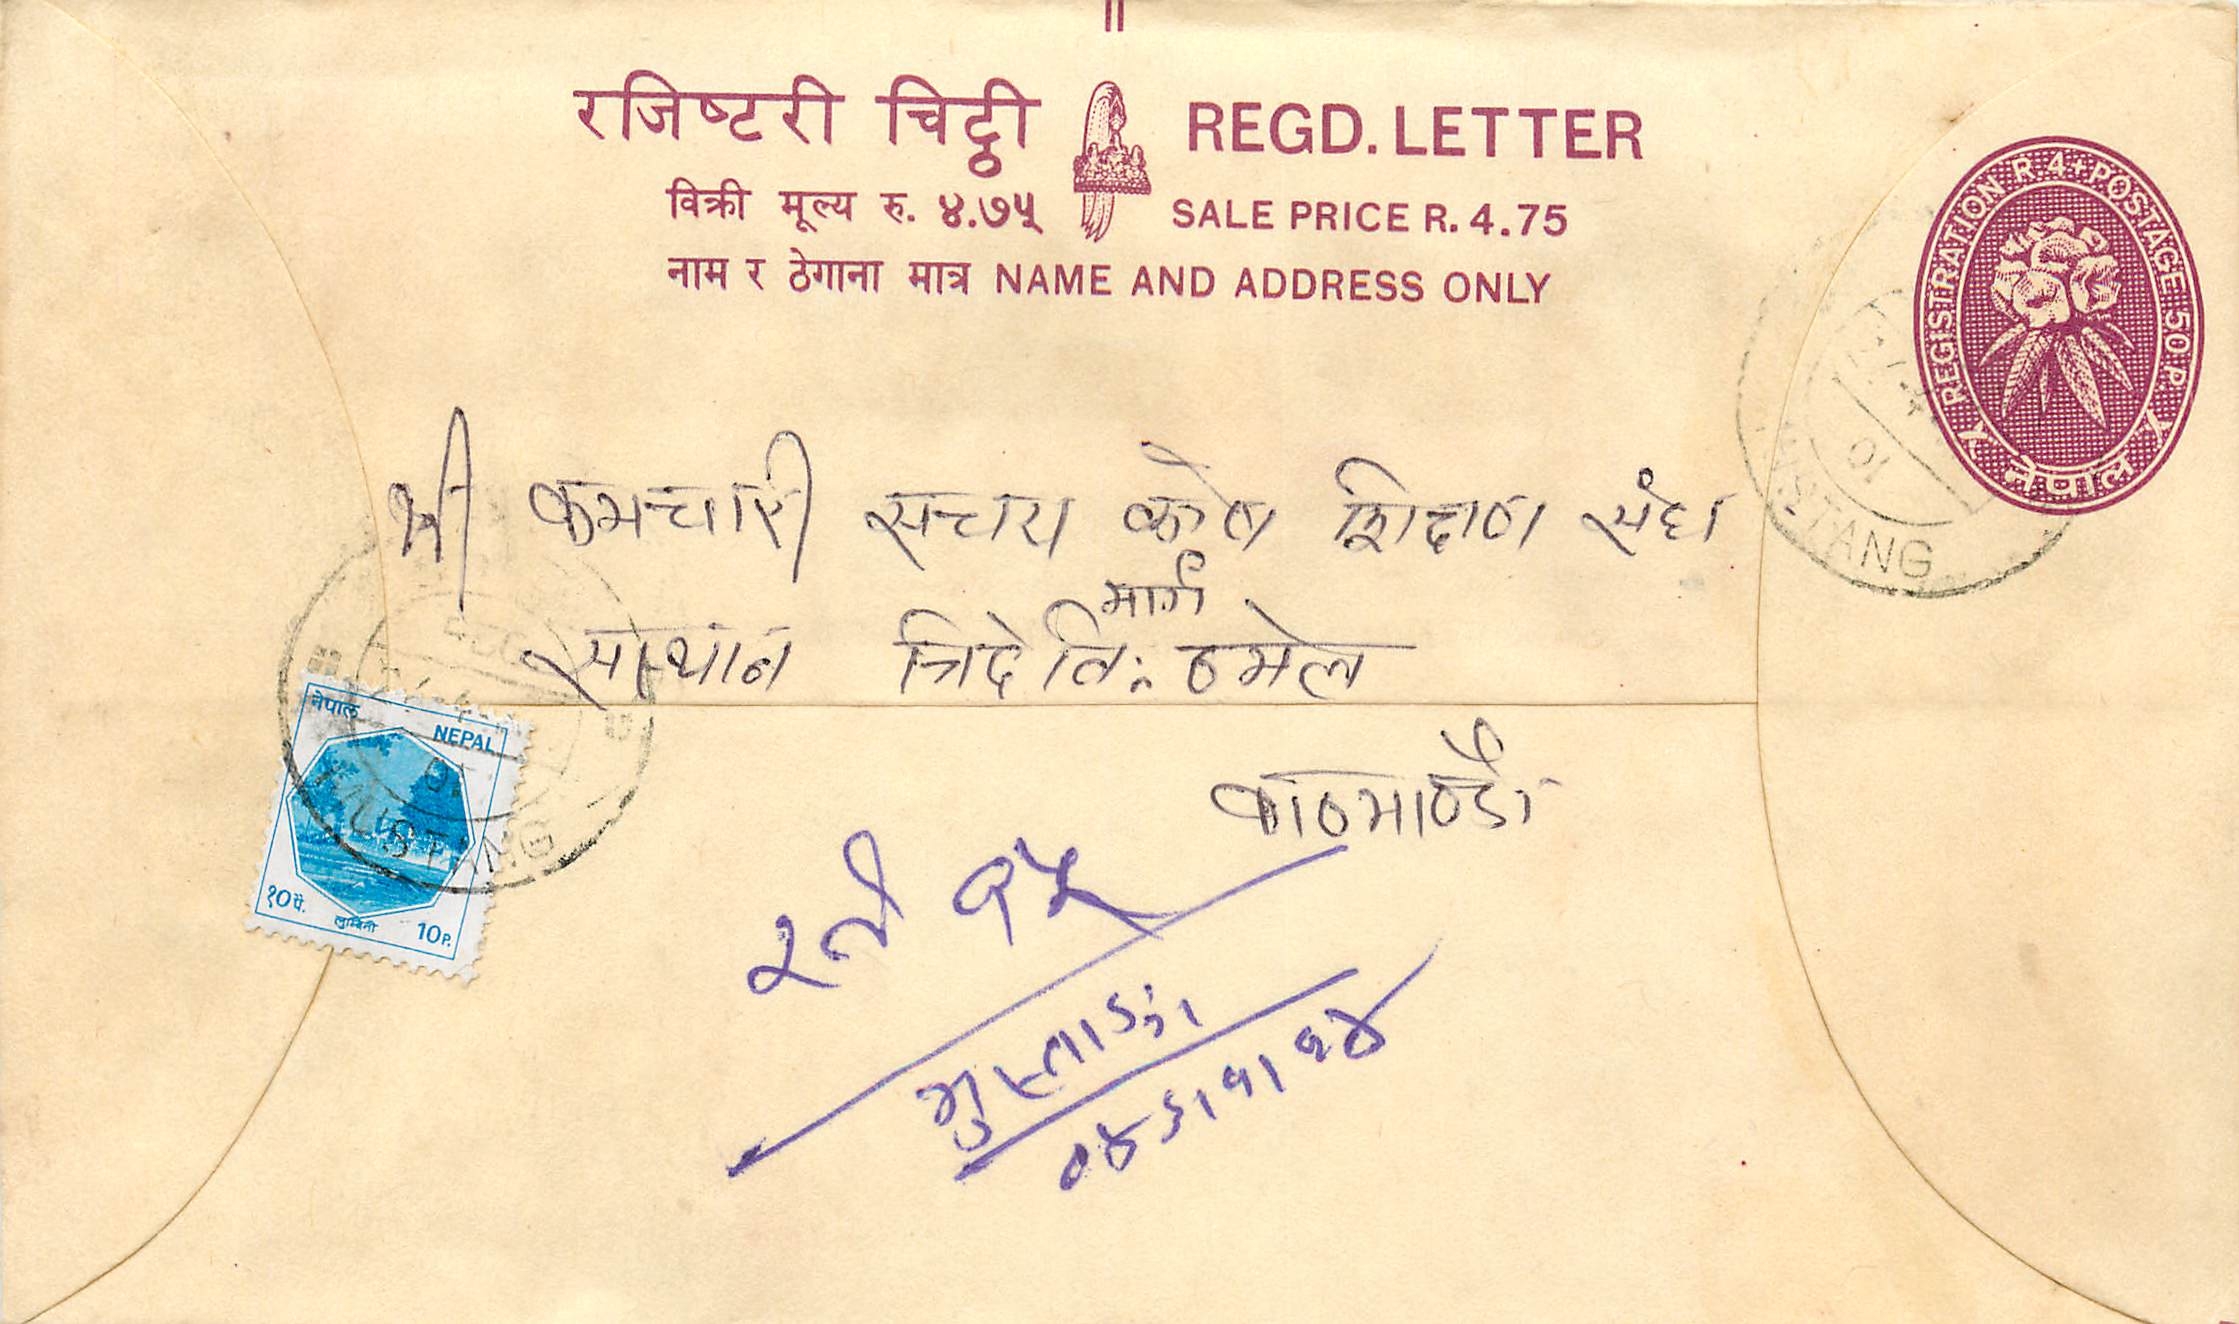 रजिष्टरी चिट्ठी REGD. LETTER
विक्री मूल्य रु. ४.७५ SALE PRICE R. 4.75
नाम र ठेगाना मात्र NAME AND ADDRESS ONLY
REGISTRATION R.4+POSTAGE 50 P.
नेपाल
श्री कर्मचारी सचय कोष शिक्षण संघ
मार्ग
सस्थान त्रिदेवि ठमेल
काठमाण्डौ
नेपाल
NEPAL
१० पै. लुम्बिनी 10 P.
MUSTANG
MUSTANG
01
मुस्ताङ